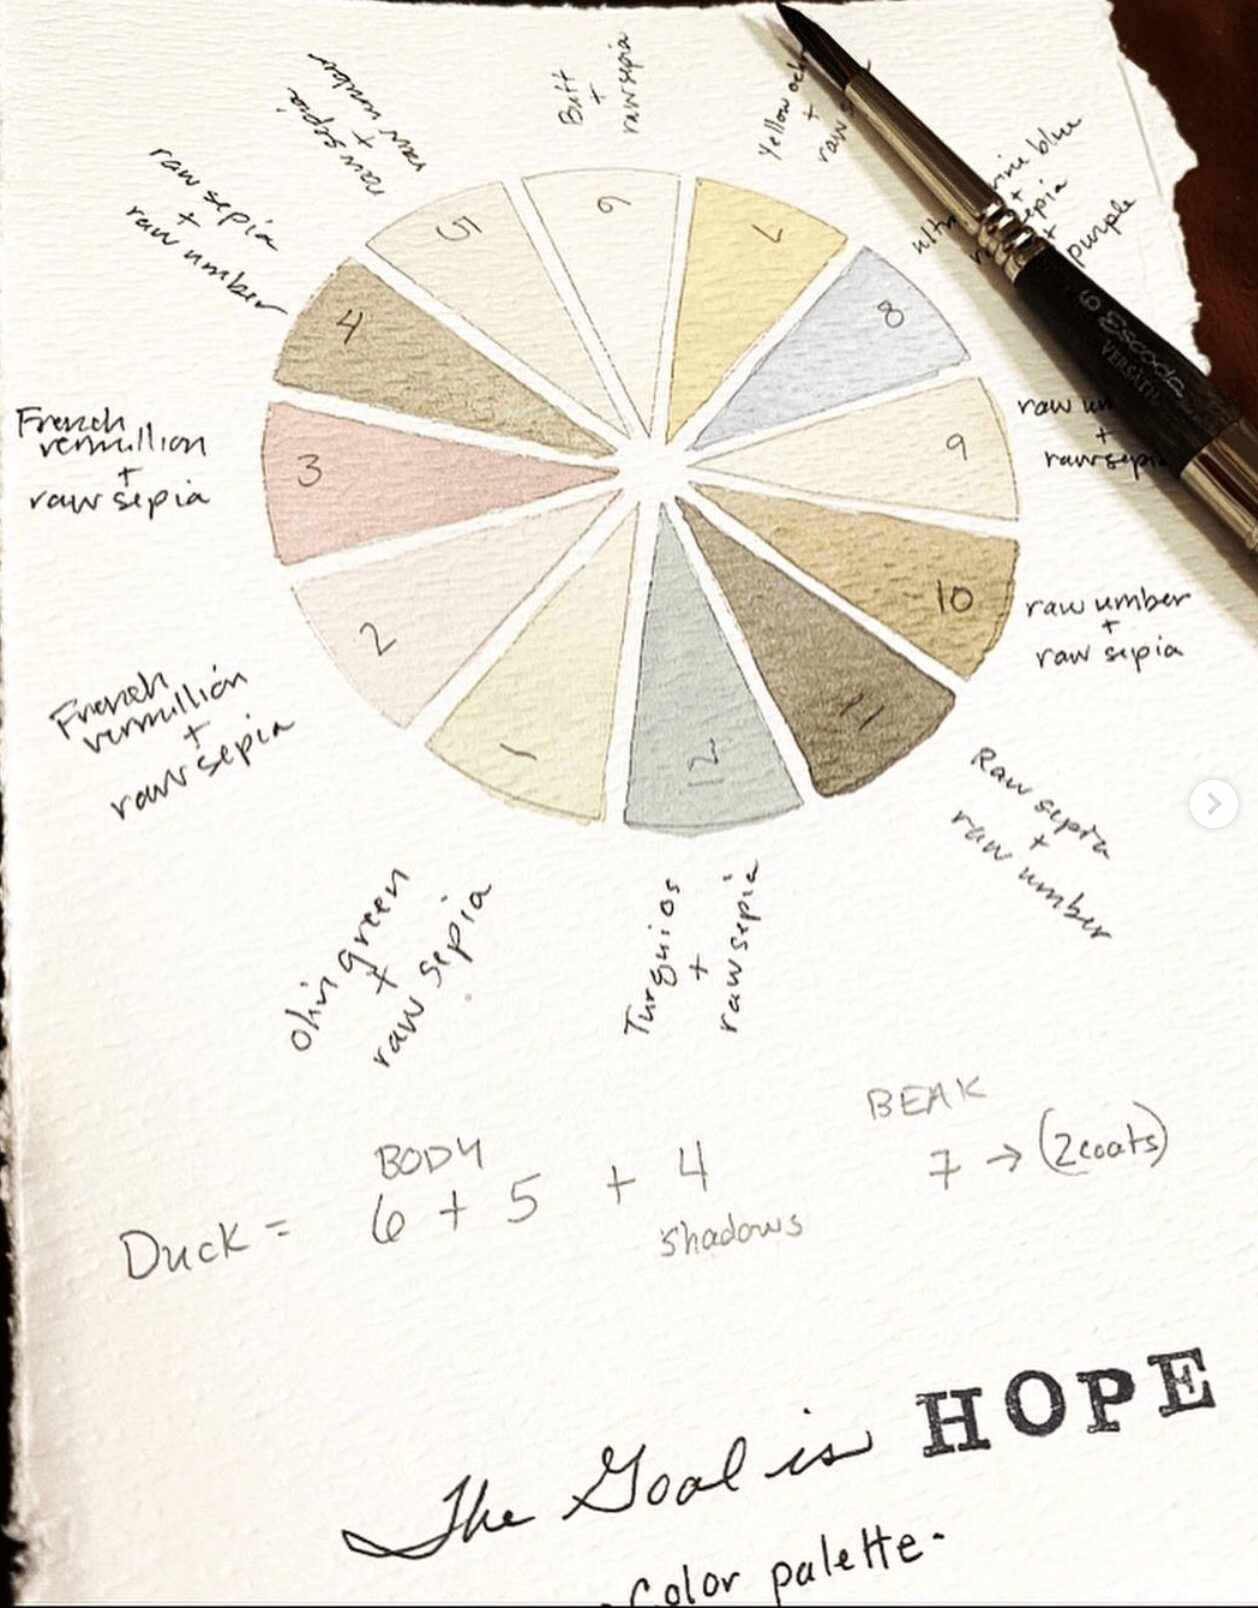 Buff
+
raw sepia
Yellow
+
raw
blue
+
+
purple
raw sepia
+
raw umber
raw sepia
+
raw number
French
vermillion
+
raw sepia
French
vermillion
+
raw sepia
oliv green
+
raw sepia
Turquios
+
raw sepia
Raw sepia
+
raw umber
raw umber
+
raw sepia
raw
+
raw sepia
1
2
3
4
5
6
7
8
9
10
11
12
6 Escoda
VERSATIL
BODY
BEAK
Duck = 6 + 5 + 4
7 → (2 coats)
shadows
The Goal is HOPE
Color palette.